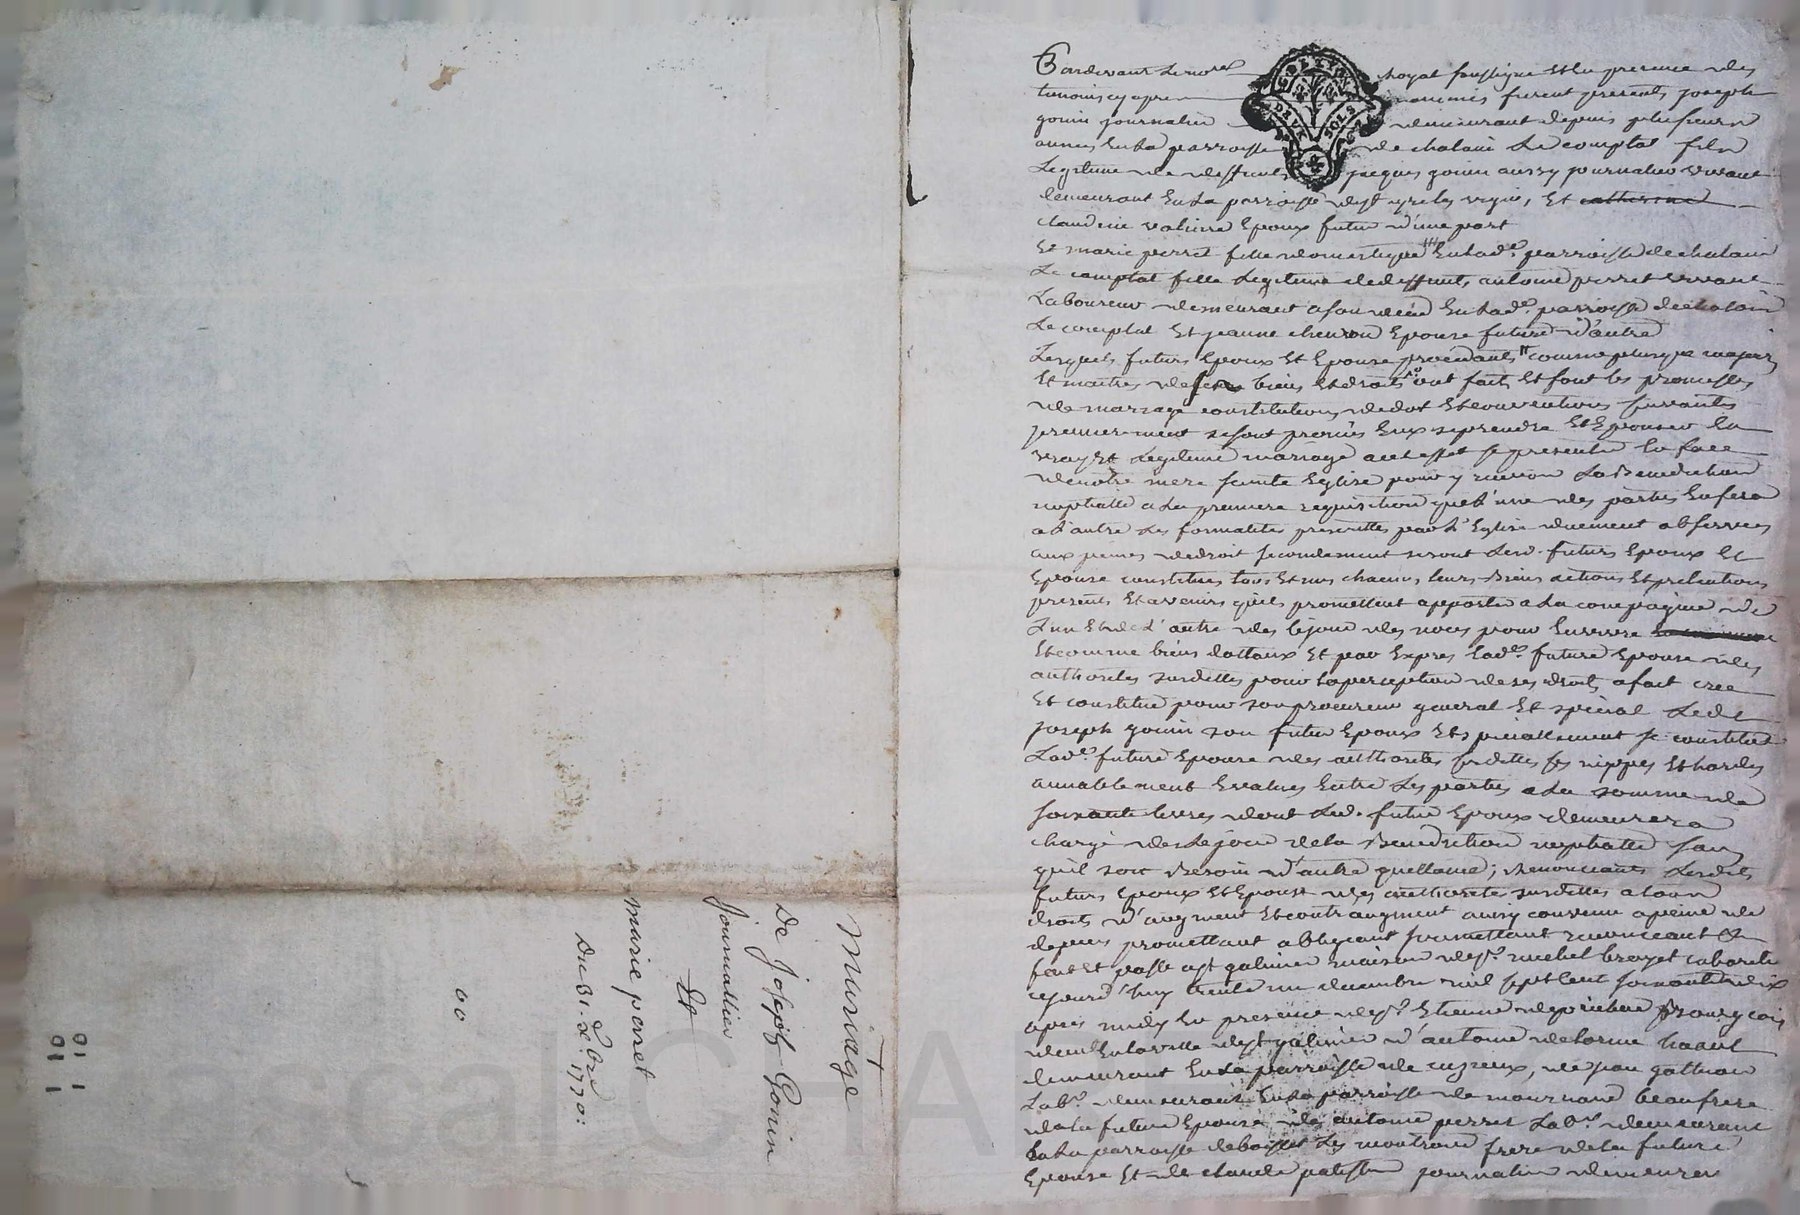 Mariage
De joseph Gonin
journallier
Et
marie perret
Du 31. Xbre 1770:
60
1 10
1 10
Pardevant le nore royal soussigné et en presence des
temoins cy apres nommés furent presents joseph
gonin journalier demeurant depuis plusieurs
années en la parroisse de chalain le comptal fils
legitime de deffunts jacques gonin aussy journalier vivant
demeurant en la parroisse de st cyr les vignes, et catherine
claudine epoux futur d'une part
Et marie perret fille domestique en lade parroisse de chalain
le comptal fille legitime de deffunts antoine perret vivant
laboureur demeurant en lade parroisse de chalain
le comptal et jeanne epouse future d'autre
Lesquels futurs epoux et epouse procedants comme plus que majeurs
et maitres de biens et droits ont fait et font les promesses
de mariage constitutions de dot et conventions suivantes
premierement se sont promis eux se prendre et epouser en
vray et legitime mariage a cet effet se presenter en face
de notre mere sainte Eglise pour y recevoir la Benediction
nuptialle a la premiere requisition que l'une des parties en fera
a l'autre les formalites prescrittes par l'Eglise duement observees
aux peines de droit secondement se sont lesd. futurs epoux et
epouse constitues tous et uns chacuns leurs biens actions et pretentions
presents et avenirs qu'ils promettent apporter a la compagnie de
l'un et de l'autre des le jour des noces pour en
et comme biens dottaux et par expres lade future epouse des
authorites susdittes pour la perception de ses droits a fait cree
et constitué pour son procureur general et special ledt
joseph gonin son futur epoux et speciallement se constitue
lade future epouse des authorites susdittes ses nippes et hardes
amiablement evalues entre les parties a la somme de
soixante livres dont led. futur epoux demeurera
chargé des le jour de la Benediction nuptialle sans
qu'il soit besoin d'autre quittance; Renonceants lesdits
futurs epoux et epouse des authorites susdittes a tous
droits d'augment et contraugment ainsy convenu a peine de
depens promettant obligeant soumettant renonceant &
fait et passé a st galmier maison de sr michel cabaretier
cejourd'huy trente un decembre mil sept cent soixante dix
apres midy en presence de sr Etienne bourgeois
de la ville de st galmier d'antoine delorme
demeurant en la parroisse de cuzieux, de jean
labr demeurant en la parroisse de beaufrere
de la future epouse de antoine perret labr demeurant
en la parroisse de boisset les montrond frere de la future
epouse et de claude journalier demeurant